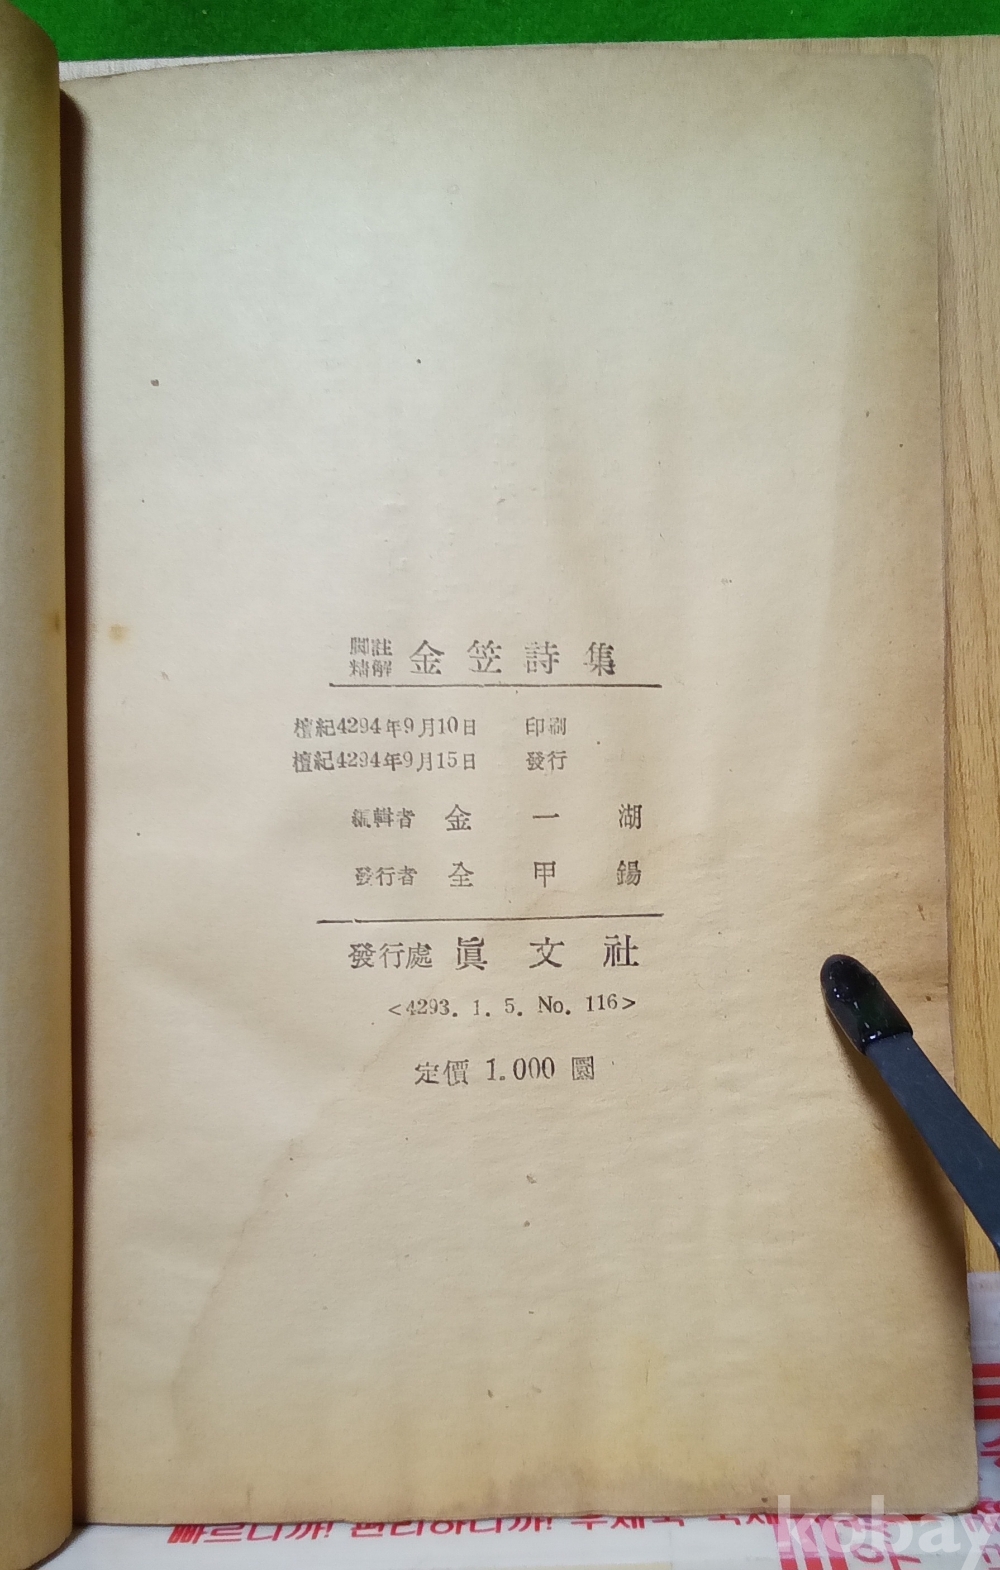 脚註
精解 金笠詩集
檀紀4294年9月10日 印刷
檀紀4294年9月15日 發行
編輯者 金一湖
發行者 全甲錫
發行處 眞文社
<4293. 1. 5. No. 116>
定價 1.000 圜
빠르니까! 편리하니까! 우체국 국제
kobay